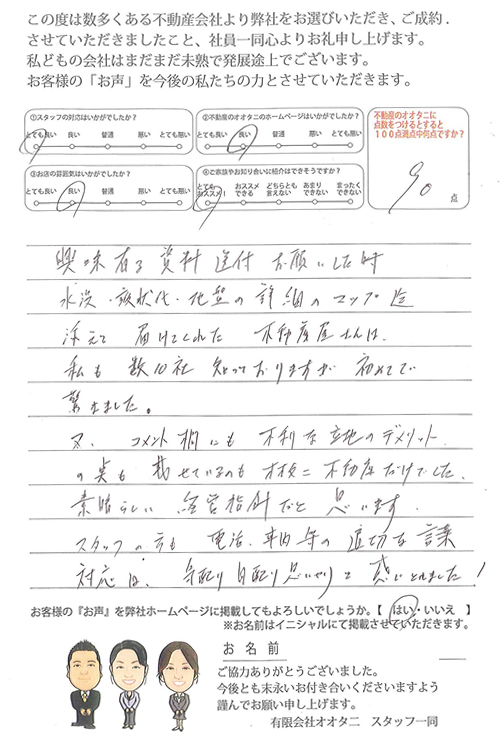 この度は数多くある不動産会社より弊社をお選びいただき、ご成約.
させていただきましたこと、社員一同心よりお礼申し上げます。
私どもの会社はまだまだ未熟で発展途上でございます。
お客様の「お声」を今後の私たちの力とさせていただきます。
①スタッフの対応はいかがでしたか？
とても良い 良い 普通 悪い とても悪い
②不動産のオオタニのホームページはいかがでしたか？
とても良い 良い 普通 悪い とても悪い
③お店の雰囲気はいかがでしたか？
とても良い 良い 普通 悪い とても悪い
④ご家族やお知り合いに紹介はできそうですか？
とてもおススメ！ おススメできる どちらとも言えない あまりできない まったくできない
不動産のオオタニに
点数をつけるとすると
100点満点中何点ですか？
90 点
興味有る資料送付お願いした時
水没・液状化・地盤の詳細のマップ迄
添えて届けてくれた不動産屋さんは、
私も数10社知っておりますが初めてで
驚きました。
又、コメント欄にも不利な立地のデメリット
の点も載せているのもオオタニ不動産だけでした。
素晴らしい経営指針だと思います。
スタッフの方も電話、車内等の適切な言葉
対応は、気配り目配り思いやりと感じとれました！
お客様の『お声』を弊社ホームページに掲載してもよろしいでしょうか。【 はい・いいえ 】
※お名前はイニシャルにて掲載させていただきます。
お名前
ご協力ありがとうございました。
今後とも末永いお付き合いくださいますよう
謹んでお願い申し上げます。
有限会社オオタニ スタッフ一同